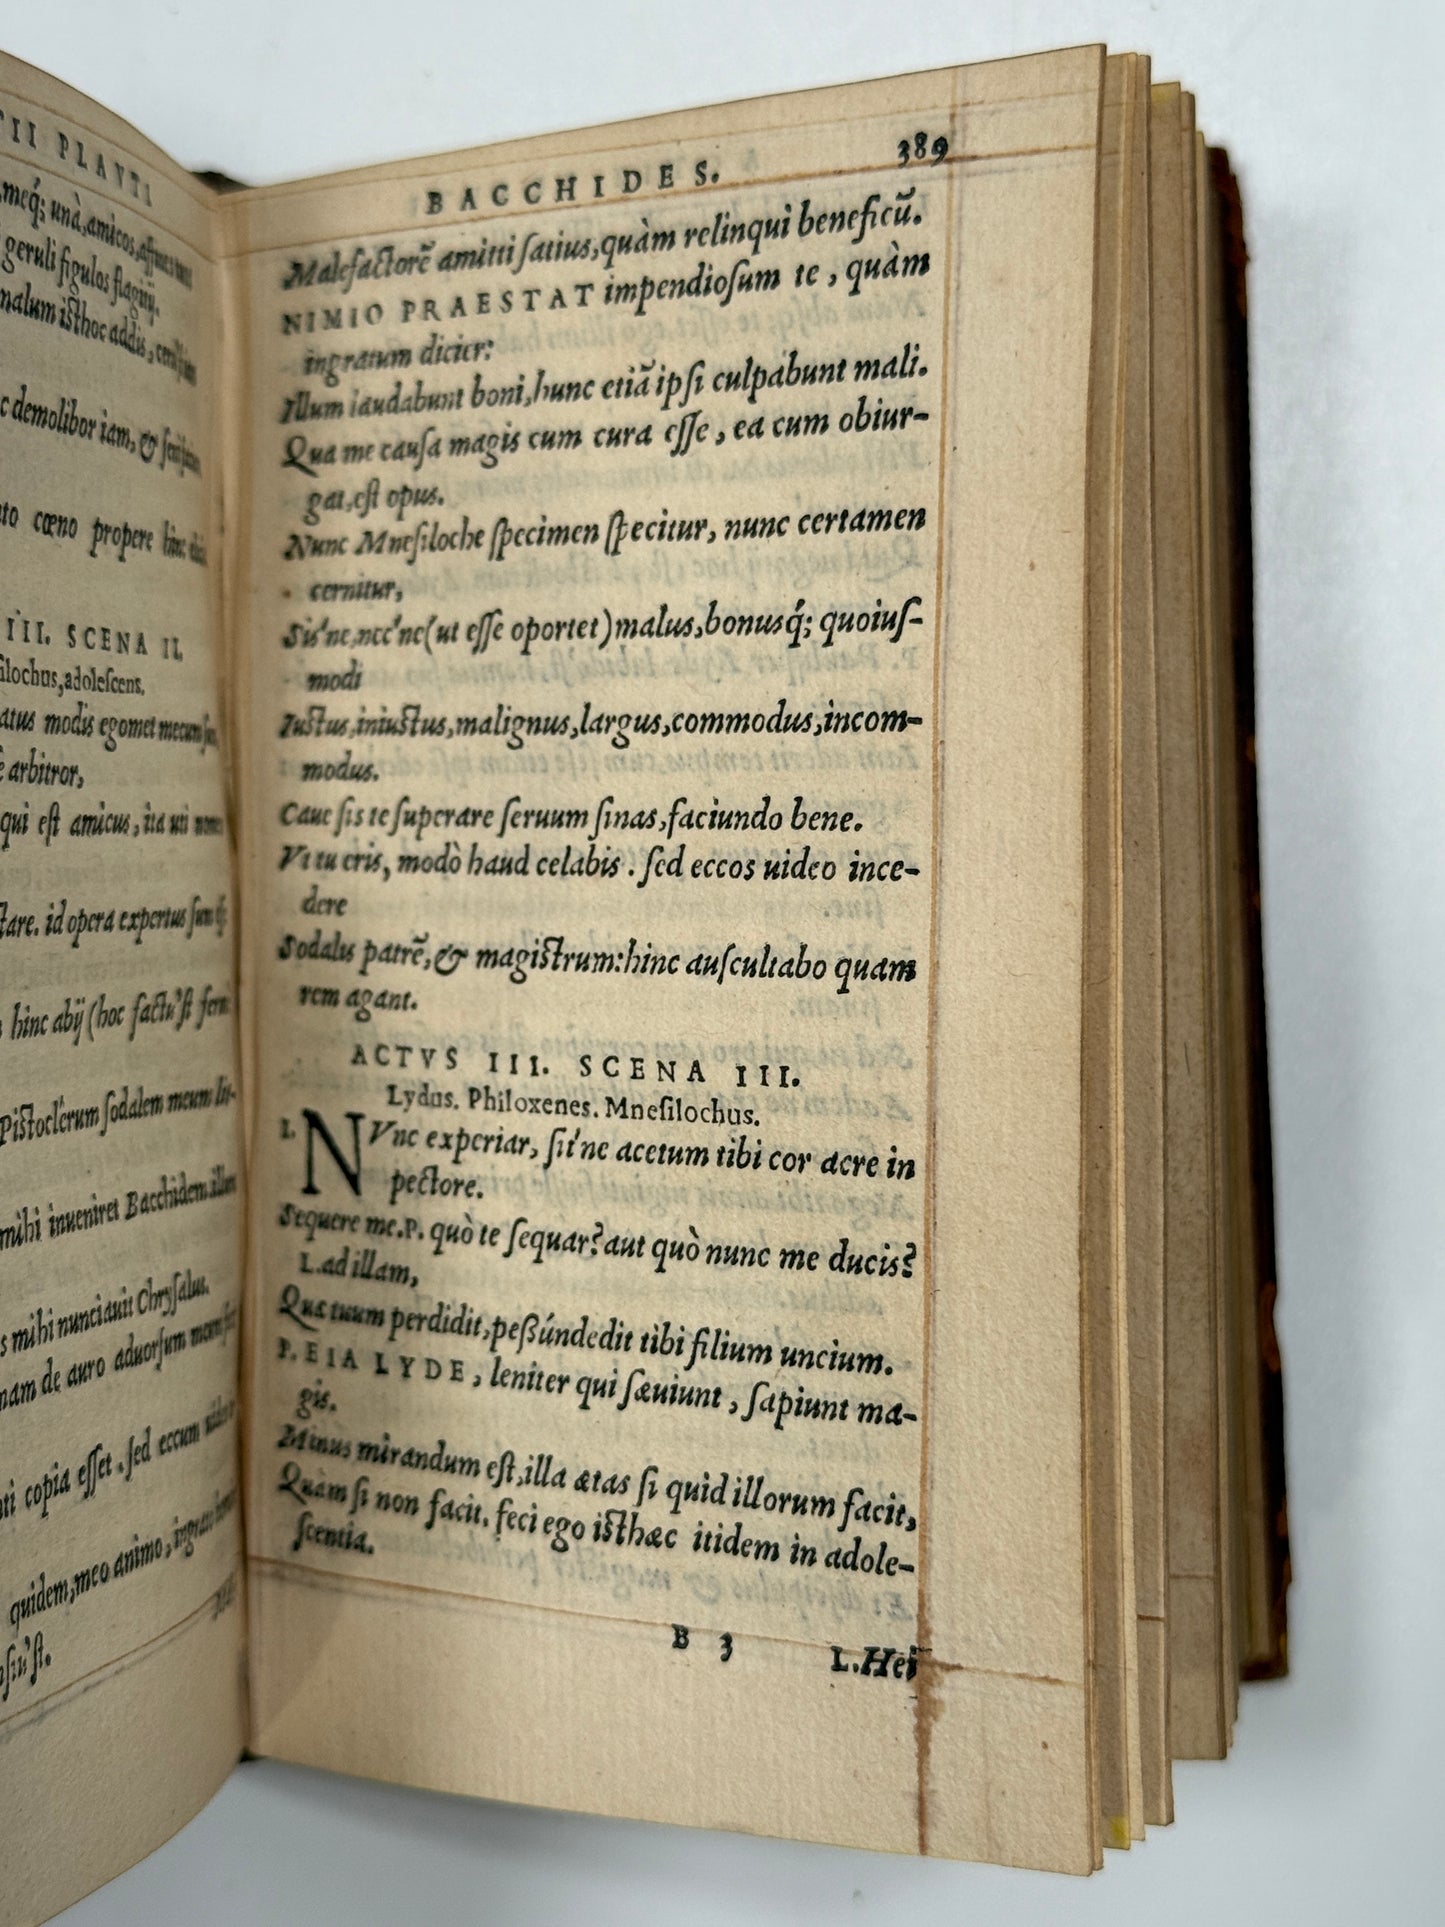 TII PLAVTI
meq́; unà, amicos,
geruli figulos flagitij.
malum isthoc addis,
demolibor iam, &
cœno propere hinc
III. SCENA II.
silochus, adolescens.
modis egomet mecum
arbitror,
qui est amicus, ita uti
id opera expertus sum
hinc abij (hoc factu'st
Pistoclerum sodalem meum
mihi inueniret Bacchidem illam
mihi nunciauit Chrysalus.
nam de auro aduorsum
copia esset. sed eccum
quidem, meo animo,
BACCHIDES. 389
Malefactorē amitti satius, quàm relinqui beneficū.
NIMIO PRAESTAT impendiosum te, quàm
ingratum dicier:
Illum laudabunt boni, hunc etiā ipsi culpabunt mali.
Qua me causa magis cum cura esse, ea cum obiur-
gat, est opus.
Nunc Mnesiloche specimen specitur, nunc certamen
cernitur,
Sis'ne, nec'ne (ut esse oportet) malus, bonusq́; quoius-
modi
Iustus, iniustus, malignus, largus, commodus, incom-
modus.
Caue sis te superare seruum sinas, faciundo bene.
Vt tu eris, modò haud celabis. sed eccos uideo ince-
dere
Sodalis patrē, & magistrum: hinc auscultabo quam
rem agant.
ACTVS III. SCENA III.
Lydus. Philoxenes. Mnesilochus.
L. NVnc experiar, sit'ne acetum tibi cor acre in
pectore.
Sequere me. P. quò te sequar? aut quò nunc me ducis?
L. ad illam,
Quæ tuum perdidit, peßúndedit tibi filium unicum.
P. EIA LYDE, leniter qui sæuiunt, sapiunt ma-
gis.
Minus mirandum est, illa ætas si quid illorum facit,
Quàm si non facit. feci ego isthæc itidem in adole-
scentia.
B 3 L. Hei